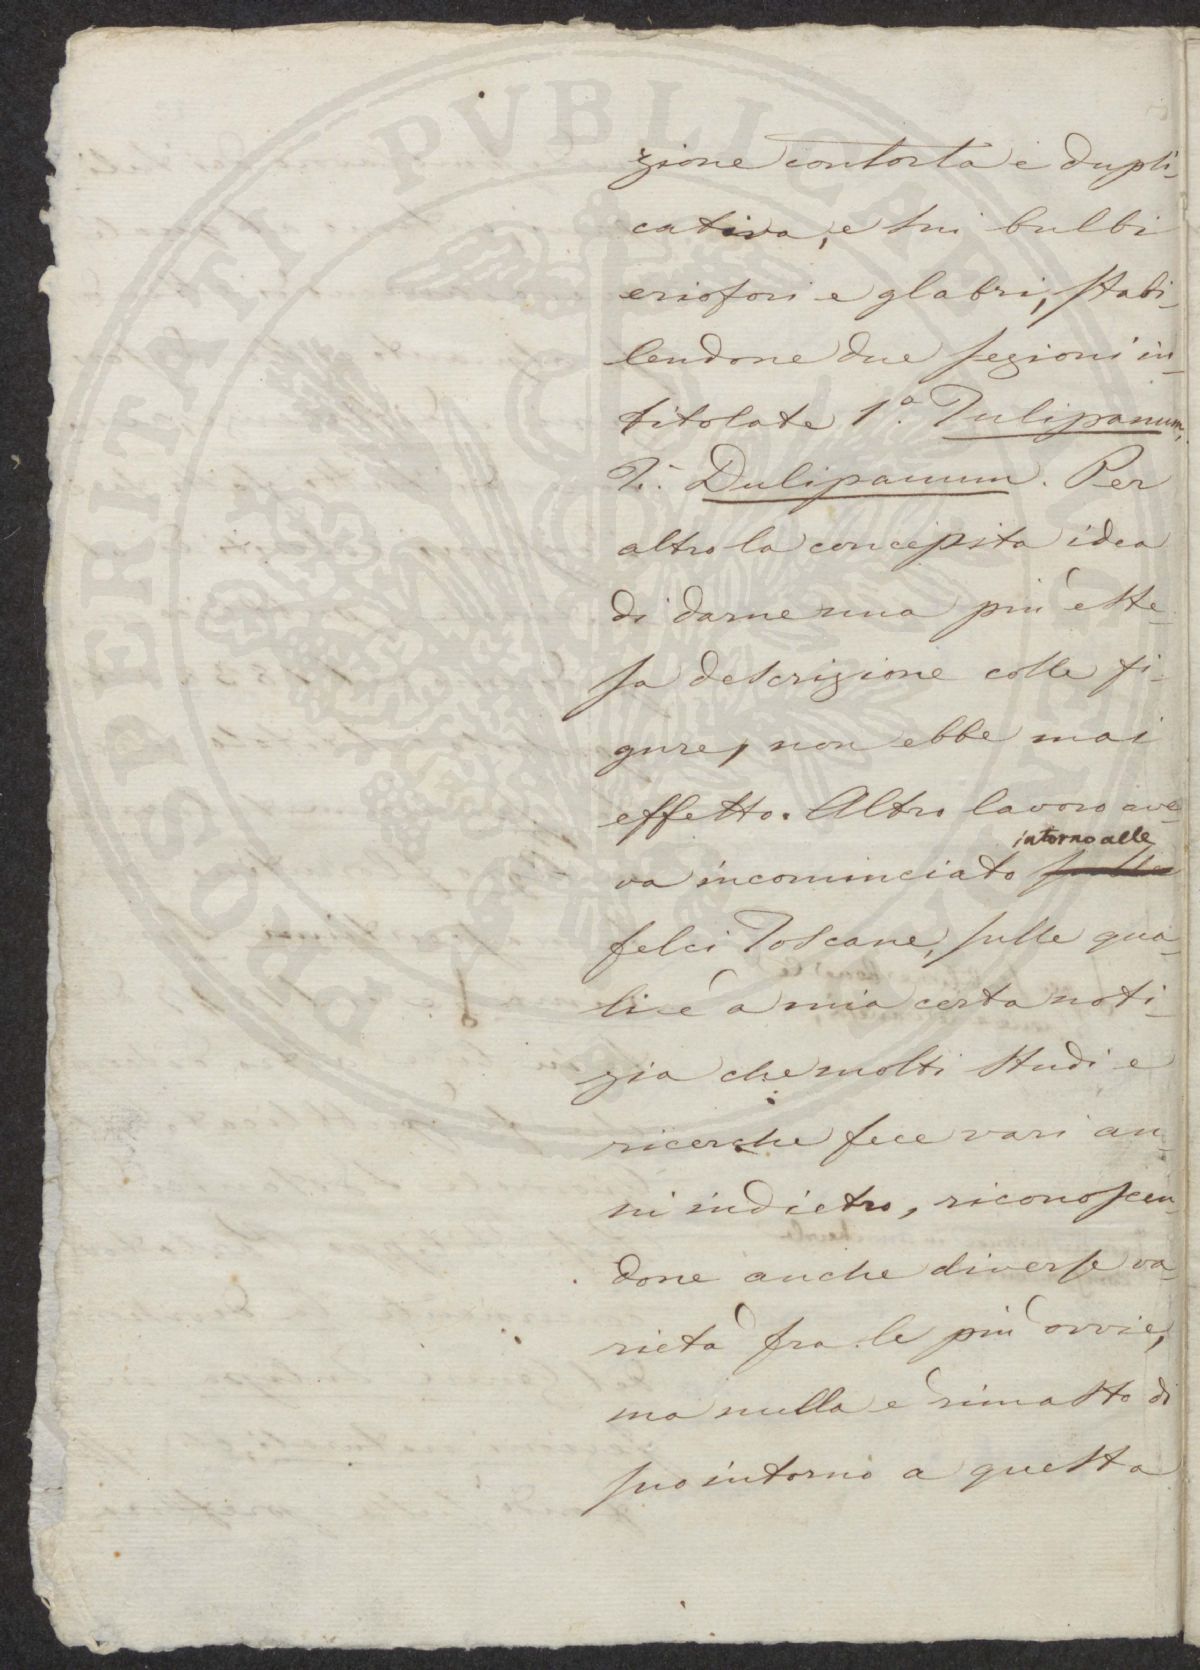 PROSPERITATI PVBLICAE AVGENDAE
zione contorta e dupli-
cativa, e sui bulbi
eriofori e glabri, stabi-
lendone due sezioni in-
titolate 1.ª Tulipanum,
2.ª Dulipanum. Per
altro la concepita idea
di darne una più este-
sa descrizione colle fi-
gure, non ebbe mai
effetto. Altro lavoro ave-
intorno alle
va incominciato sulle
felci Toscane, sulle qua-
li è a mia certa noti-
zia che molti studi e
ricerche fece vari an-
ni indietro, riconoscen-
done anche diverse va-
rietà fra le più ovvie,
ma nulla è rimasto di
suo intorno a questa